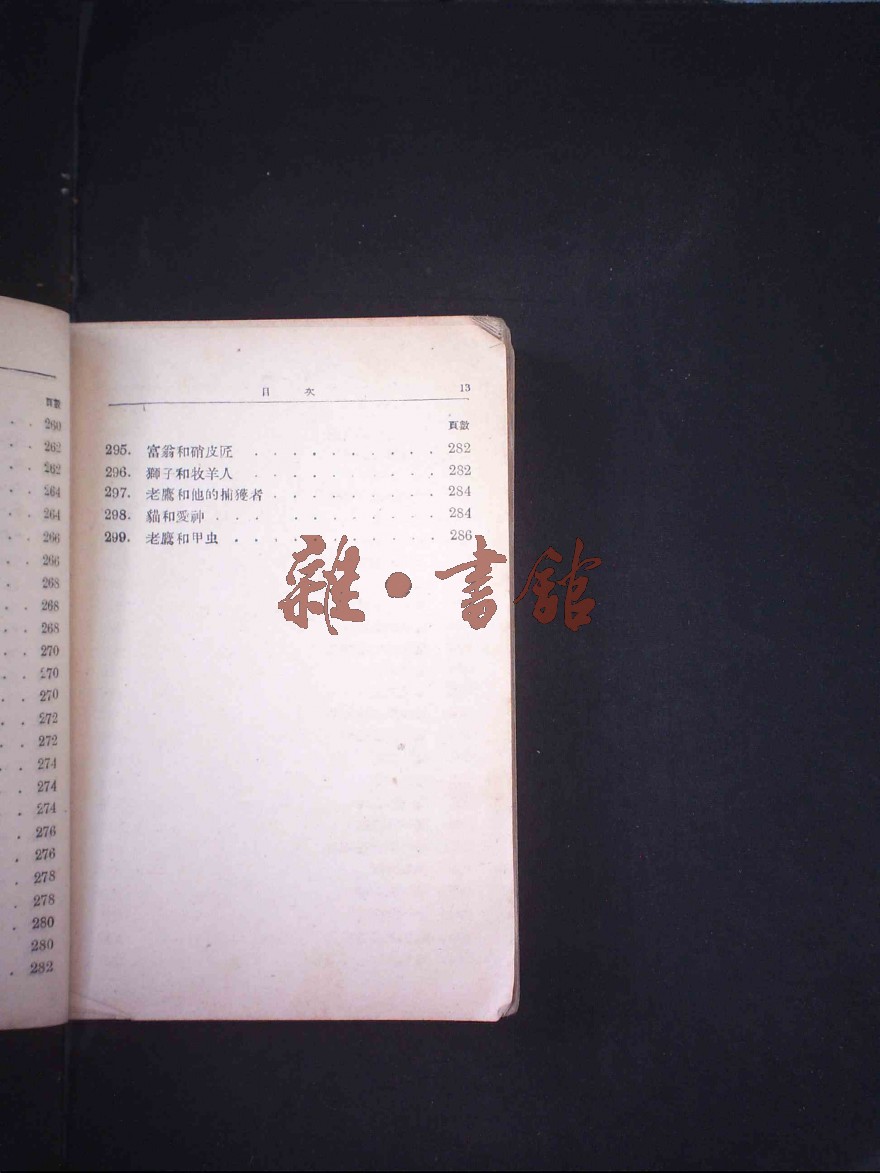 頁數
260
262
262
264
264
266
266
268
268
268
270
270
270
272
272
274
274
274
276
276
278
278
280
280
282
目 次 13
頁數
295. 富翁和硝皮匠 . . . . . . . . . . 282
296. 獅子和牧羊人 . . . . . . . . . . 282
297. 老鷹和他的捕獲者 . . . . . . . . . 284
298. 貓和愛神 . . . . . . . . . . . 284
299. 老鷹和甲虫 . . . . . . . . . . 286
雜·書館